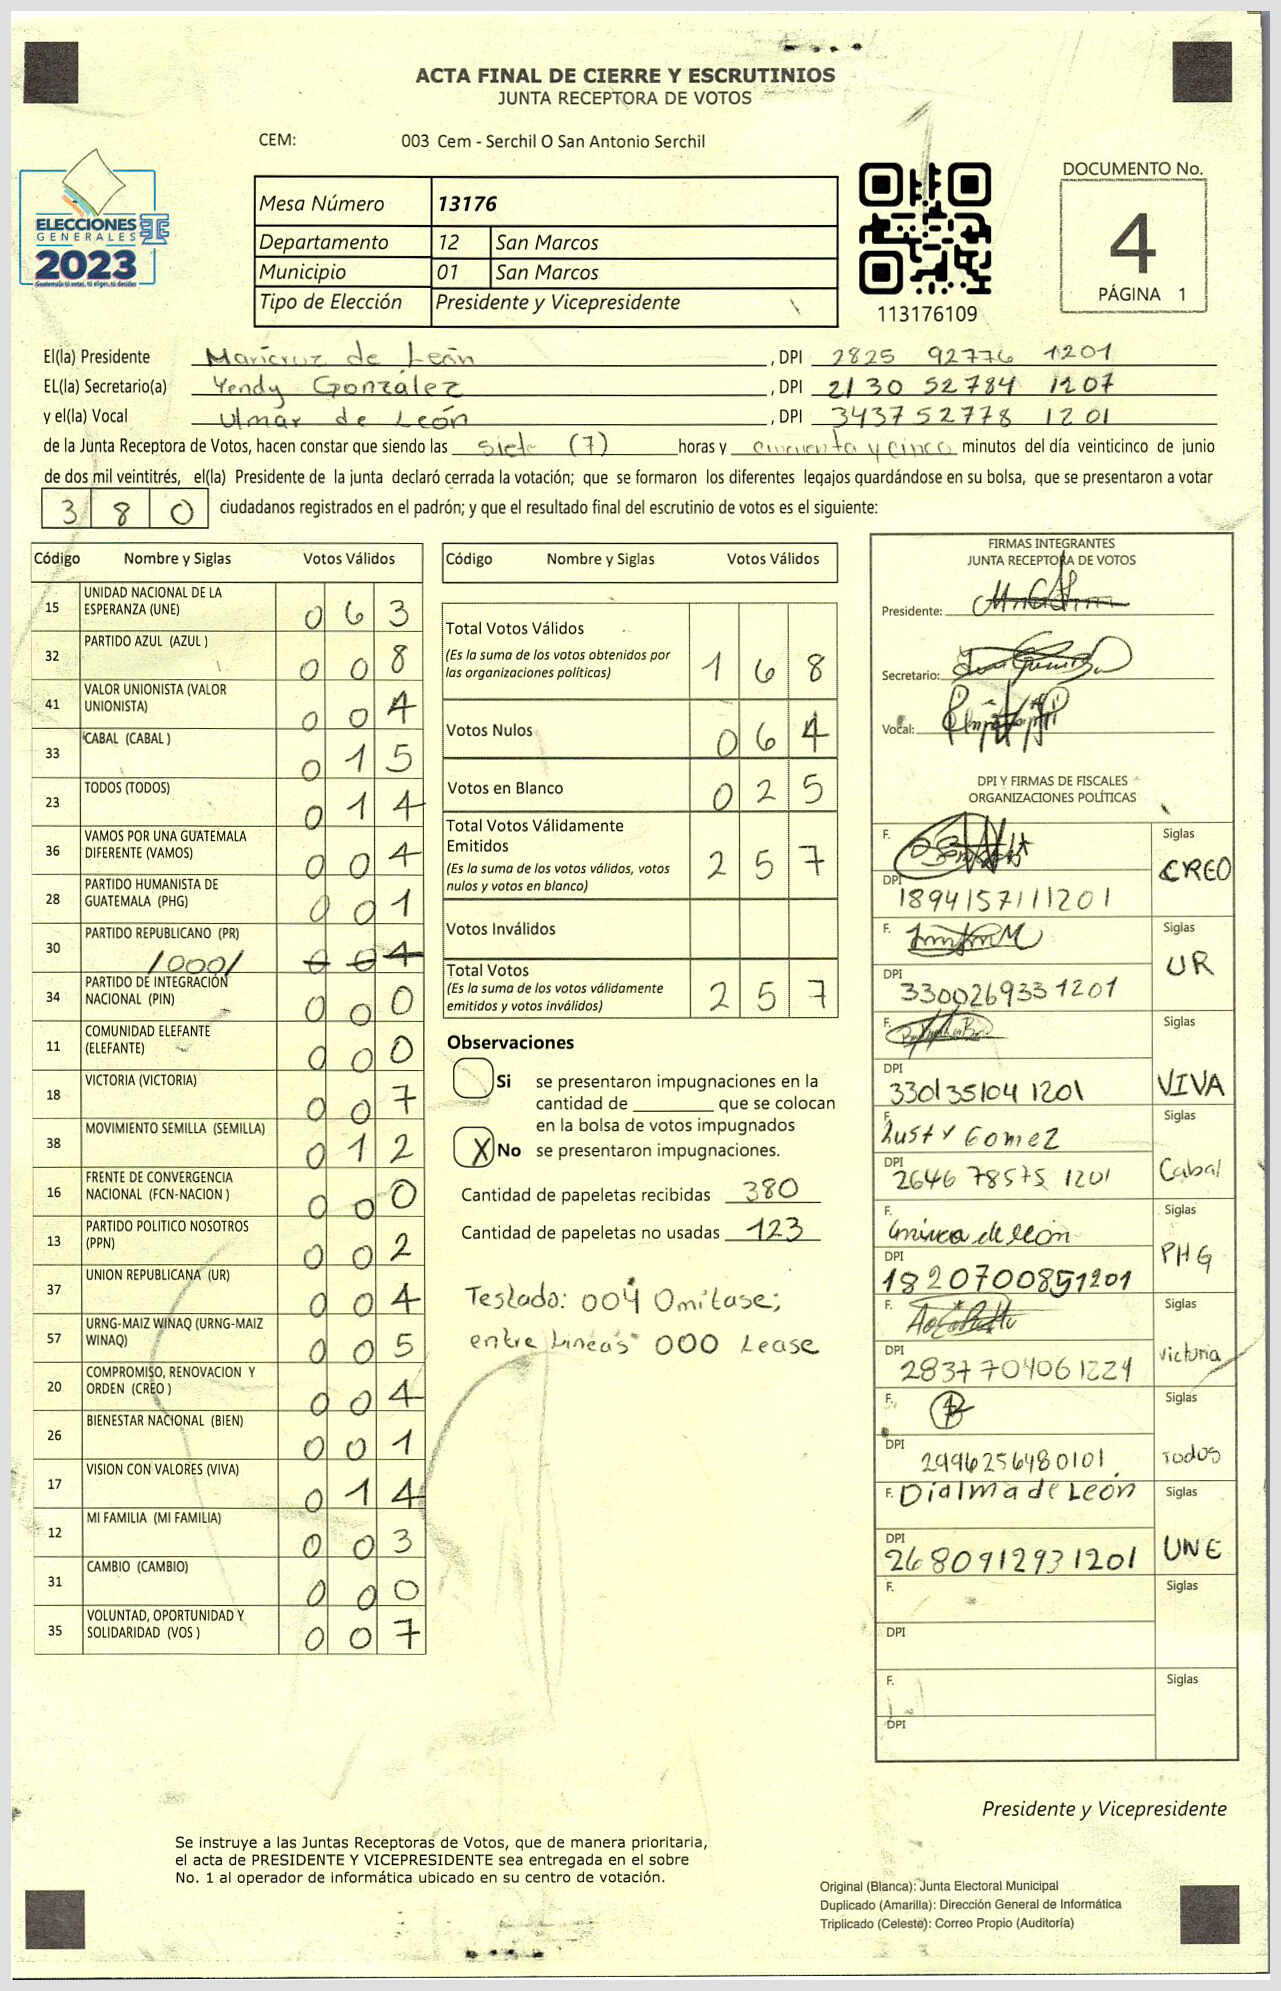 ACTA FINAL DE CIERRE Y ESCRUTINIOS
JUNTA RECEPTORA DE VOTOS
CEM: 003 Cem - Serchil O San Antonio Serchil
ELECCIONES
GENERALES
2023
Guatemala tú votas, tú eliges, tú decides
Mesa Número 13176
Departamento 12 San Marcos
Municipio 01 San Marcos
Tipo de Elección Presidente y Vicepresidente
113176109
DOCUMENTO No.
4
PÁGINA 1
El(la) Presidente Maricruz de León, DPI 2825 92776 1201
EL(la) Secretario(a) Yendy González, DPI 2130 52784 1207
y el(la) Vocal Ulmar de León, DPI 3437 52778 1201
de la Junta Receptora de Votos, hacen constar que siendo las siete (7) horas y cincuenta y cinco minutos del día veinticinco de junio
de dos mil veintitrés, el(la) Presidente de la junta declaró cerrada la votación; que se formaron los diferentes legajos guardándose en su bolsa, que se presentaron a votar
380 ciudadanos registrados en el padrón; y que el resultado final del escrutinio de votos es el siguiente:
Código Nombre y Siglas Votos Válidos
15 UNIDAD NACIONAL DE LA
ESPERANZA (UNE) 063
32 PARTIDO AZUL (AZUL ) 008
41 VALOR UNIONISTA (VALOR
UNIONISTA) 004
33 CABAL (CABAL ) 015
23 TODOS (TODOS) 014
36 VAMOS POR UNA GUATEMALA
DIFERENTE (VAMOS) 004
28 PARTIDO HUMANISTA DE
GUATEMALA (PHG) 001
30 PARTIDO REPUBLICANO (PR)
/000/ 004
34 PARTIDO DE INTEGRACIÓN
NACIONAL (PIN) 000
11 COMUNIDAD ELEFANTE
(ELEFANTE) 000
18 VICTORIA (VICTORIA) 007
38 MOVIMIENTO SEMILLA (SEMILLA) 012
16 FRENTE DE CONVERGENCIA
NACIONAL (FCN-NACION ) 000
13 PARTIDO POLITICO NOSOTROS
(PPN) 002
37 UNION REPUBLICANA (UR) 004
57 URNG-MAIZ WINAQ (URNG-MAIZ
WINAQ) 005
20 COMPROMISO, RENOVACION Y
ORDEN (CREO ) 004
26 BIENESTAR NACIONAL (BIEN) 001
17 VISION CON VALORES (VIVA) 014
12 MI FAMILIA (MI FAMILIA) 003
31 CAMBIO (CAMBIO) 000
35 VOLUNTAD, OPORTUNIDAD Y
SOLIDARIDAD (VOS ) 007
Código Nombre y Siglas Votos Válidos
Total Votos Válidos
(Es la suma de los votos obtenidos por
las organizaciones políticas) 168
Votos Nulos 064
Votos en Blanco 025
Total Votos Válidamente
Emitidos
(Es la suma de los votos válidos, votos
nulos y votos en blanco) 257
Votos Inválidos
Total Votos
(Es la suma de los votos válidamente
emitidos y votos inválidos) 257
Observaciones
Si se presentaron impugnaciones en la
cantidad de ________ que se colocan
en la bolsa de votos impugnados
X No se presentaron impugnaciones.
Cantidad de papeletas recibidas 380
Cantidad de papeletas no usadas 123
Testado: 004 Omitase;
entre Lineas 000 Lease
FIRMAS INTEGRANTES
JUNTA RECEPTORA DE VOTOS
Presidente:
Secretario:
Vocal:
DPI Y FIRMAS DE FISCALES
ORGANIZACIONES POLÍTICAS
F. Siglas
CREO
DPI
1894157111201
F. Siglas
UR
DPI
3300269331201
F. Siglas
DPI
3301351041201 VIVA
F. Siglas
Lusty Gomez
DPI
2646 78575 1201 Cabal
F. Siglas
de león
DPI PHG
1820700851201
F. Siglas
DPI Victoria
2837704061224
F. Siglas
DPI
2996256480101 Todos
F. Dialma de León Siglas
DPI
2680912931201 UNE
F. Siglas
DPI
F. Siglas
DPI
Presidente y Vicepresidente
Se instruye a las Juntas Receptoras de Votos, que de manera prioritaria,
el acta de PRESIDENTE Y VICEPRESIDENTE sea entregada en el sobre
No. 1 al operador de informática ubicado en su centro de votación.
Original (Blanca): Junta Electoral Municipal
Duplicado (Amarilla): Dirección General de Informática
Triplicado (Celeste): Correo Propio (Auditoría)